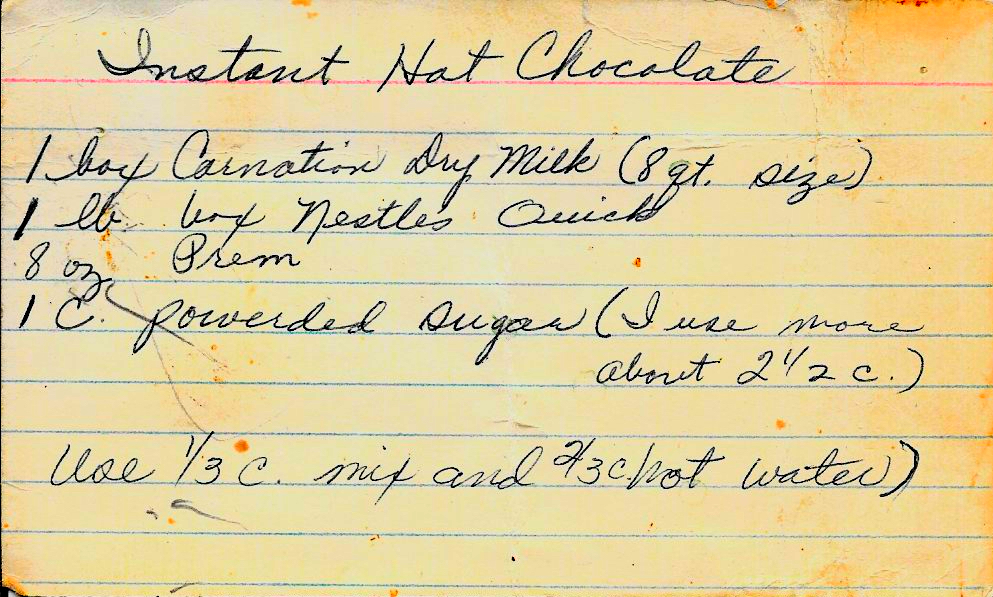 Instant Hot Chocolate
1 box Carnation Dry Milk (8 qt. size)
1 lb. box Nestles Quick
8 oz Prem
1 C. powerded sugar (I use more
about 2 1/2 c.)
Use 1/3 c. mix and 2/3 c. hot water)